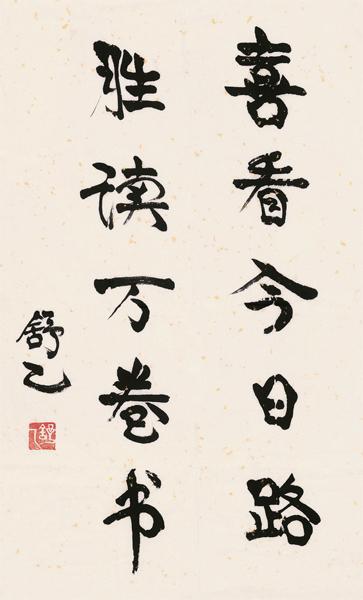 喜看今日路
胜读万卷书
舒乙
舒乙